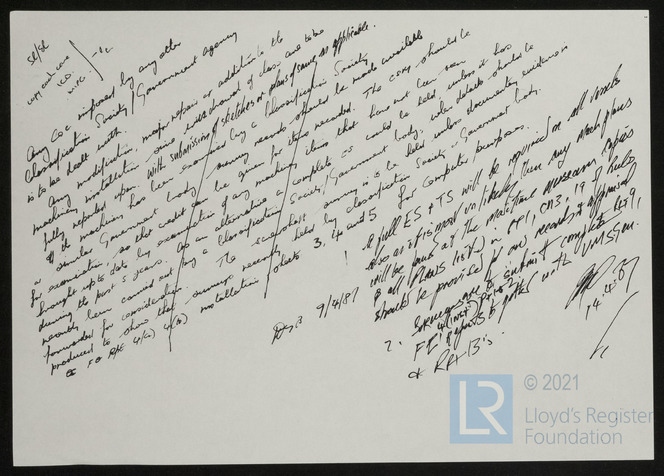 SE/SL
copy and case
ICO
Any CoC imposed by any other
Classification Society/Government agency
is to be dealt with.
Any modification, major repair or addition to the
machinery installation since withdrawal of class are to be
fully reported upon. with submission of sketches or plans of same, as applicable.
If the machinery has been examined by a Classification Society
or similar Government body, survey records should be made available
for examination, so that credit can be given for those recorded. The CSM should be
brought up to date by examination of any machinery items that have not been seen
during the past 5 years. As an alternative a complete ES could be held, unless it has
recently been carried out by a Classification Society/Government body, when details should be
forwarded for consideration. The screwshaft survey is to be held unless documentary evidence is
produced to show the surveys recently held by classification Society or Government body.
FE Rpts 4(a) 4(b) installation sheets 3, 4 and 5 for computer purposes.
9/4/87
1. A full ES & TS will be required on all vessels
also as it is most unlikely then any such plans
will be found at the
& all PLANS listed in PT1, CH3, 19 of Rules
should be provided for our records & appraisal
2. Surveyors are to submit complete Rpt 9,
FE Reports together with
& Rpt 13's.
14.4.87
© 2021
LR
Lloyd's Register
Foundation